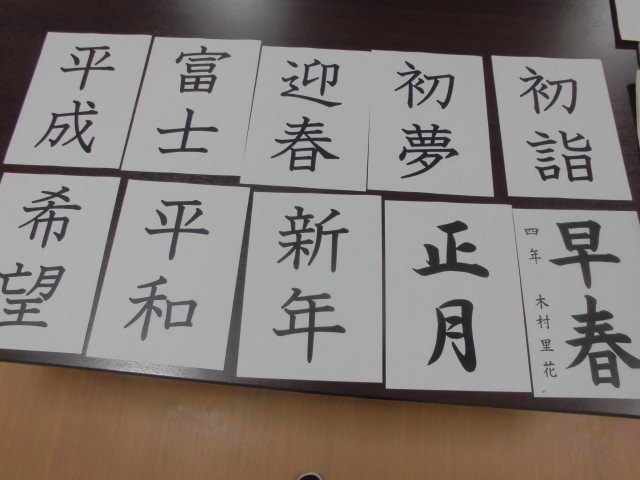 平成
富士
迎春
初夢
初詣
希望
平和
新年
正月
早春
四年 木村里花